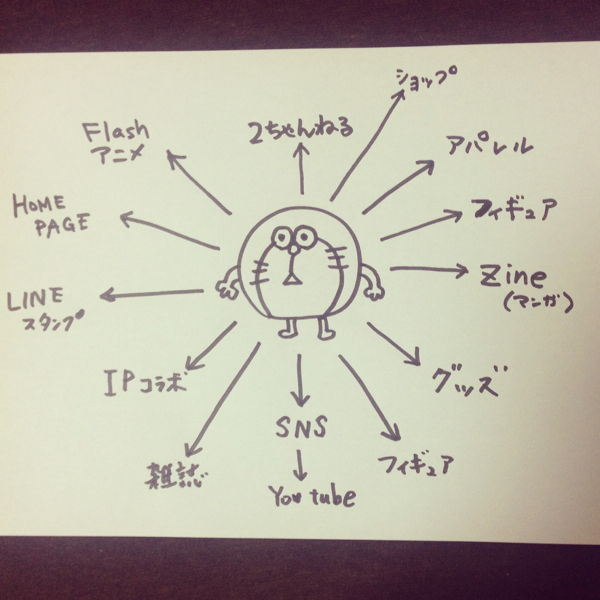 ショップ
2ちゃんねる
Flash
アニメ
アパレル
HOME
PAGE
フィギュア
Zine
(マンガ)
LINE
スタンプ
IPコラボ
グッズ
SNS
雑誌
フィギュア
You tube